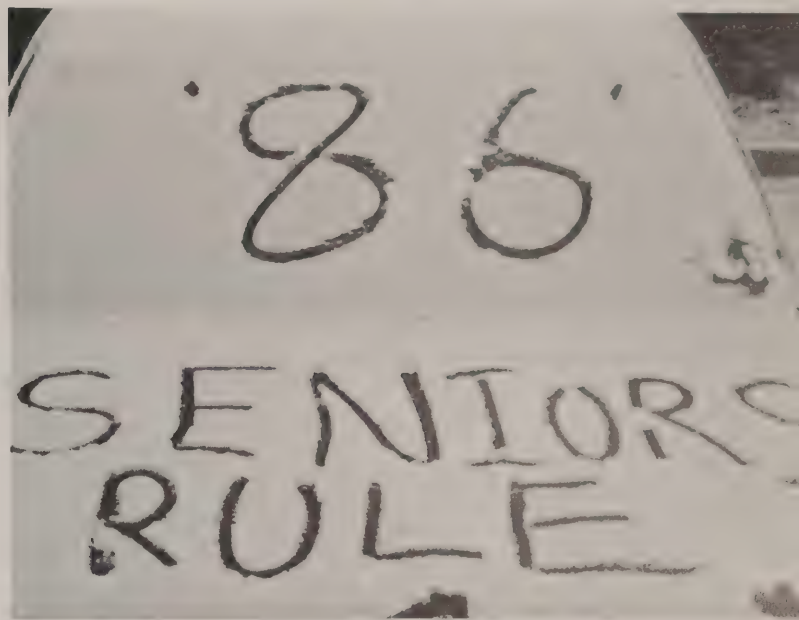 '86'
SENIORS
RULE